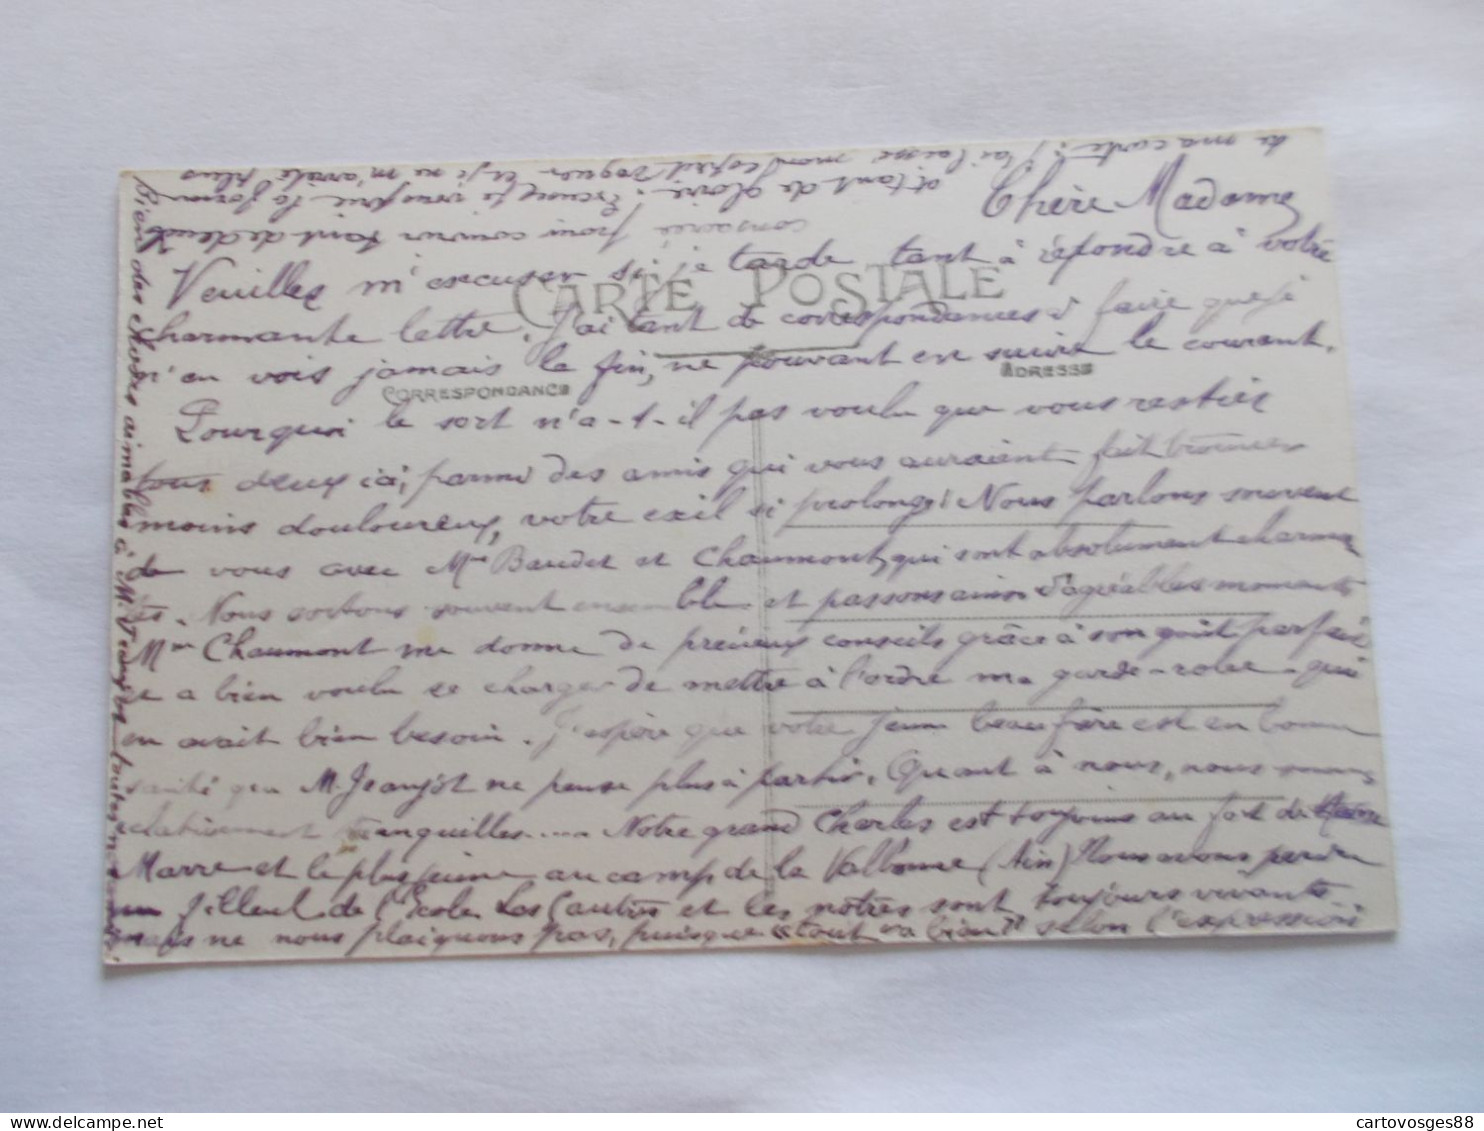 Chère Madame
Veuillez m'excuser si je tarde tant à répondre à votre
CARTE POSTALE
charmante lettre. J'ai tant de correspondances à faire que je
n'en vois jamais la fin, ne pouvant en suivre le courant.
CORRESPONDANCE
ADRESSE
Pourquoi le sort n'a-t-il pas voulu que vous restiez
tous deux ici, parmi des amis qui vous auraient fait trouver
moins douloureux, votre exil si prolongé! Nous parlons souvent
de vous avec Mmes Baudet et Chaumont, qui sont absolument charman
tes. Nous sortons souvent ensemble et passons ainsi d'agréables moments
Mme Chaumont me donne de précieux conseils grâce à son goût parfait
et a bien voulu se charger de mettre à l'ordre ma garde-robe qui
en avait bien besoin. J'espère que votre jeune beau frère est en bonne
santé que M. Jeanjot ne pense plus à partir. Quant à nous, nous sommes
relativement tranquilles.... Notre grand Charles est toujours au fort de
Marre et le plus jeune au camp de la Valbonne (Ain) Nous avons perdu
un filleul de l'Ecole. Les autres et les nôtres sont toujours vivants
mais ne nous plaignons pas, puisque "tout va bien" selon l'expression
consacrée pour couvrir tant de deuils
et tant de gloire. Excusez je vous prie la forme
de ma carte: j'ai laissé mon esprit voguer et je ne m'arrête plus
Bien des choses aimables à M.